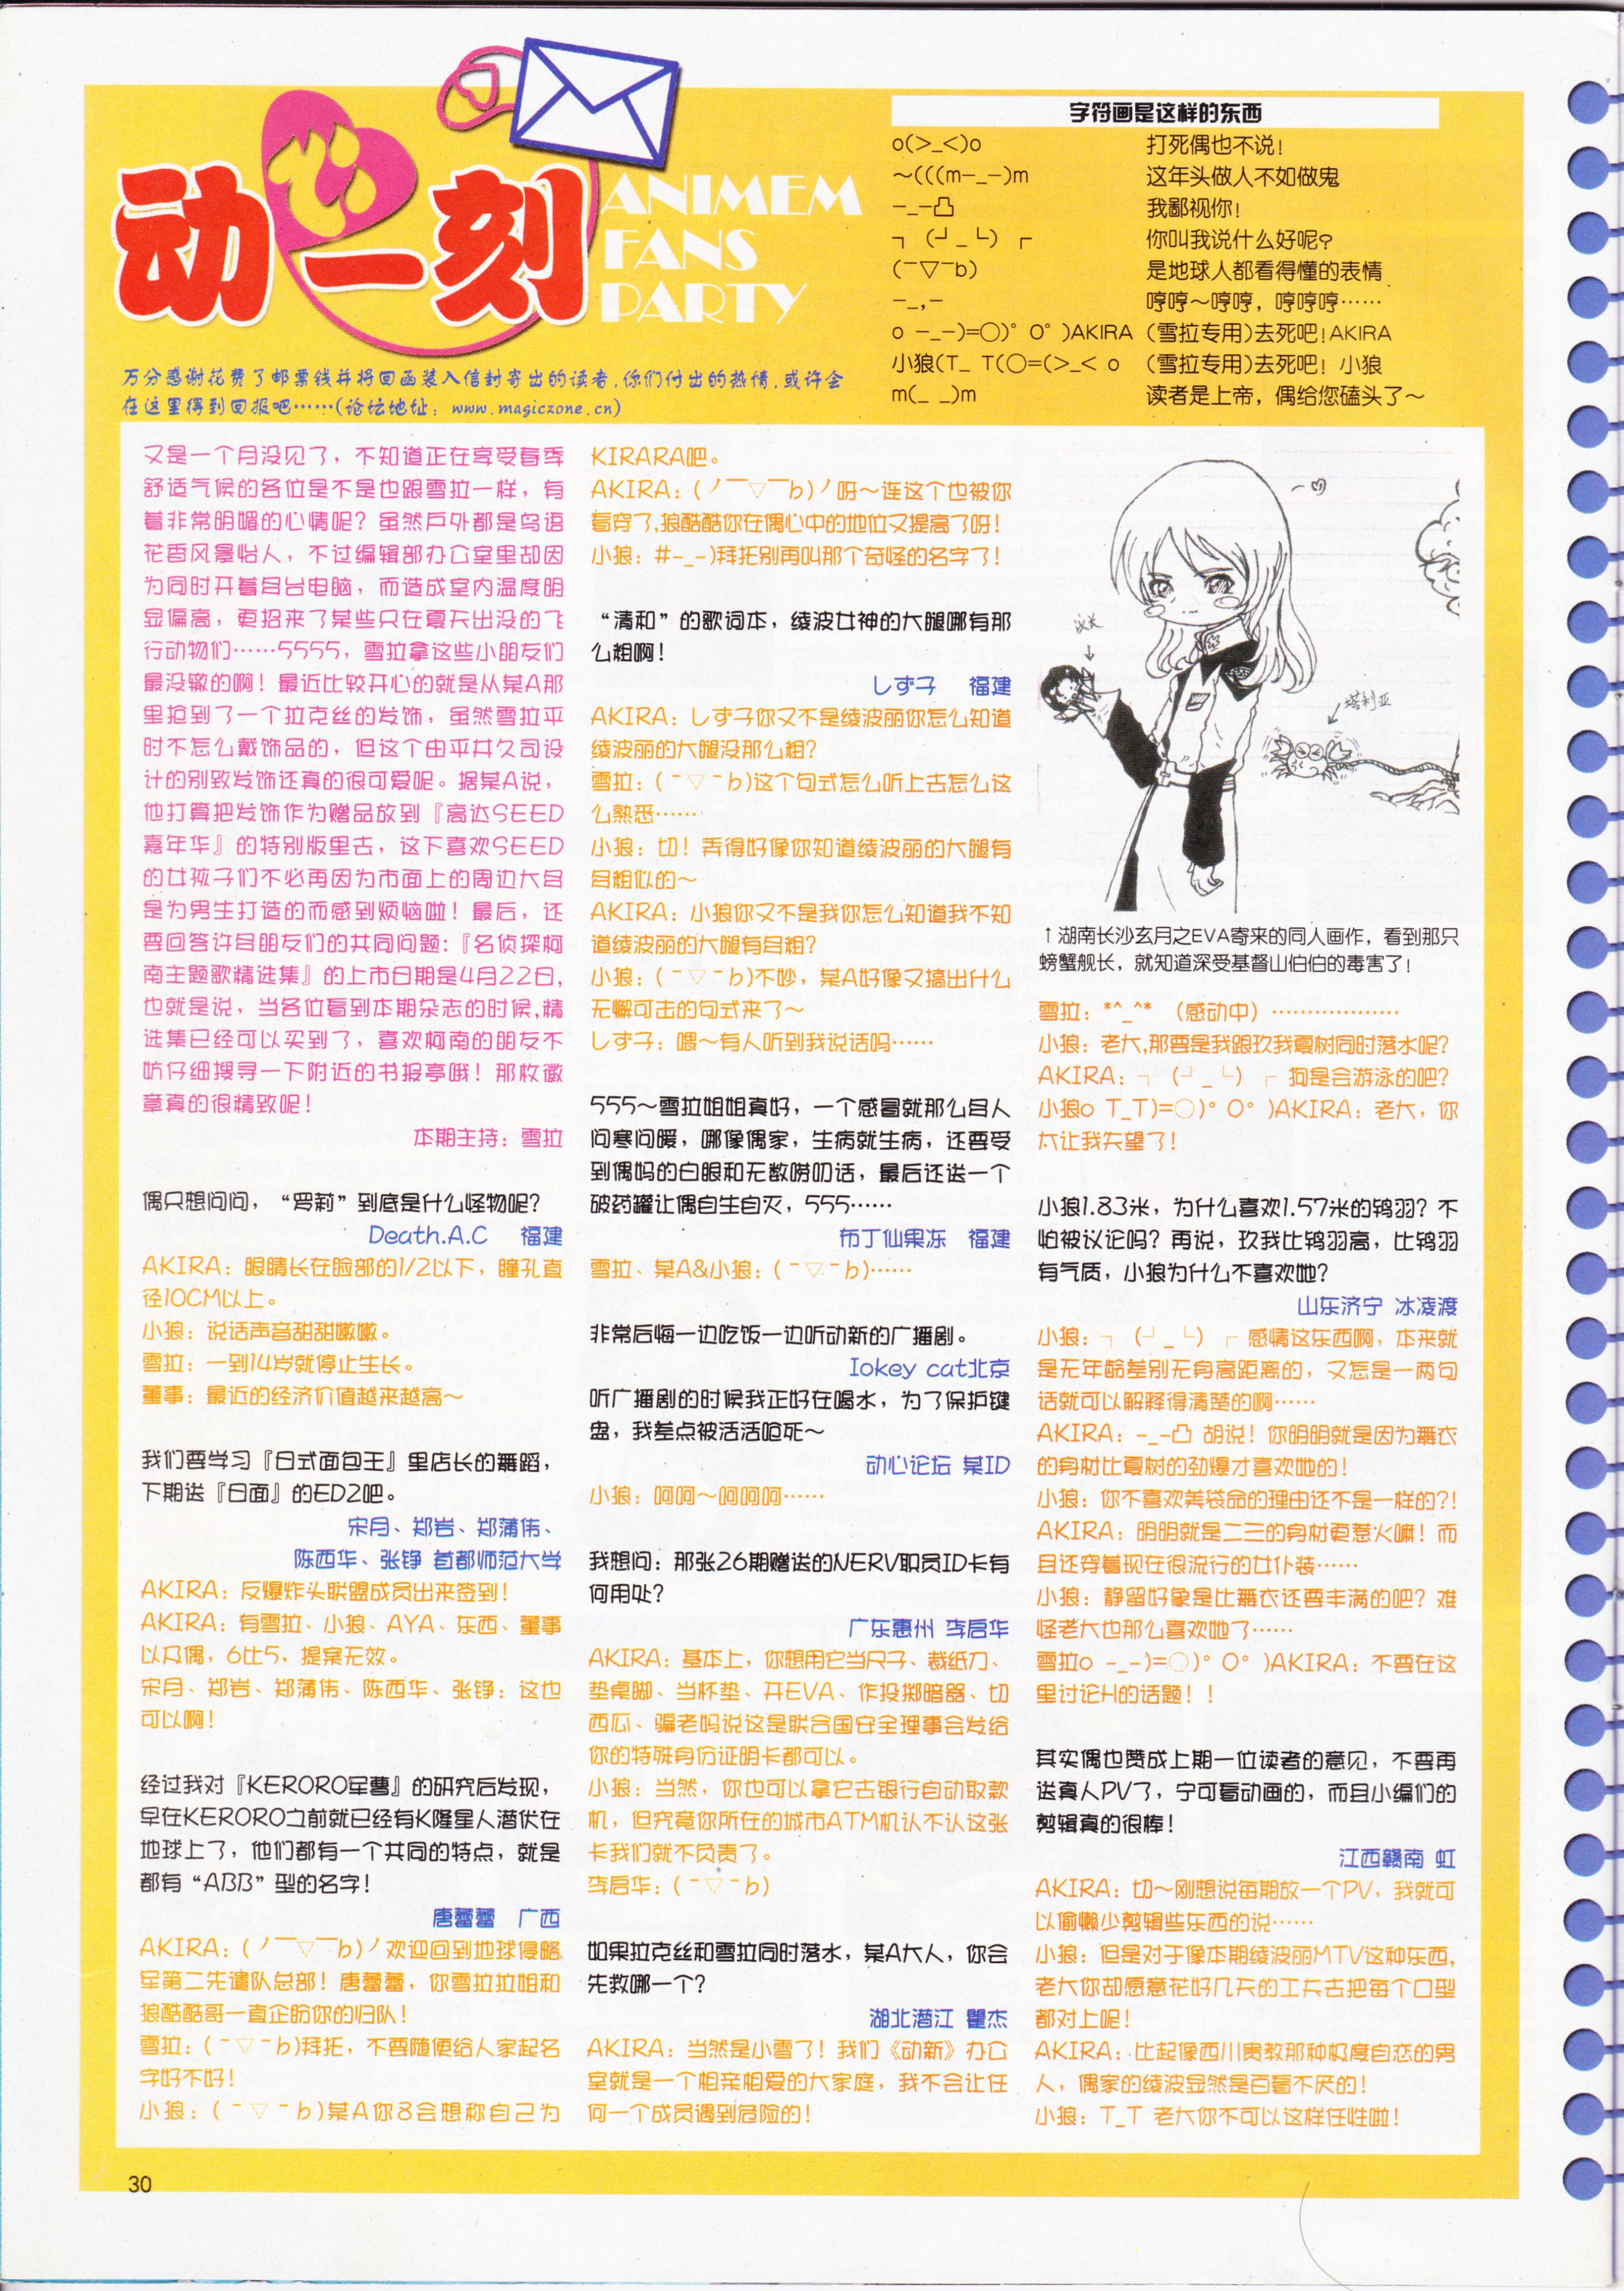 动心一刻
ANIMEM
FANS
PARTY
万分感谢花费了邮票钱并将回函装入信封寄出的读者,你们付出的热情,或许会
在这里得到回报吧……(论坛地址：www.magiczone.cn)
字符画是这样的东西
o(>_<)o 打死偶也不说！
～(((m-_-)m 这年头做人不如做鬼
-_-凸 我鄙视你！
┐（┘_└）┌ 你叫我说什么好呢？
(¯▽¯b) 是地球人都看得懂的表情
-_,- 哼哼～哼哼，哼哼哼……
o -_-)=○)° O° )AKIRA (雪拉专用)去死吧！AKIRA
小狼(T_ T(○=(>_< o (雪拉专用)去死吧！小狼
m(_ _)m 读者是上帝，偶给您磕头了～
又是一个月没见了，不知道正在享受春季
舒适气候的各位是不是也跟雪拉一样，有
着非常明媚的心情呢？虽然户外都是鸟语
花香风景怡人，不过编辑部办公室里却因
为同时开着多台电脑，而造成室内温度明
显偏高，更招来了某些只在夏天出没的飞
行动物们……5555，雪拉拿这些小朋友们
最没辙的啊！最近比较开心的就是从某A那
里抢到了一个拉克丝的发饰，虽然雪拉平
时不怎么戴饰品的，但这个由平井久司设
计的别致发饰还真的很可爱呢。据某A说，
他打算把发饰作为赠品放到『高达SEED
嘉年华』的特别版里去，这下喜欢SEED
的女孩子们不必再因为市面上的周边大多
是为男生打造的而感到烦恼啦！最后，还
要回答许多朋友们的共同问题：『名侦探柯
南主题歌精选集』的上市日期是4月22日，
也就是说，当各位看到本期杂志的时候,精
选集已经可以买到了，喜欢柯南的朋友不
妨仔细搜寻一下附近的书报亭哦！那枚徽
章真的很精致呢！
本期主持：雪拉
偶只想问问，“罗莉”到底是什么怪物呢？
Death.A.C 福建
AKIRA：眼睛长在脸部的1/2以下，瞳孔直
径10CM以上。
小狼：说话声音甜甜嫩嫩。
雪拉：一到14岁就停止生长。
董事：最近的经济价值越来越高～
我们要学习『日式面包王』里店长的舞蹈，
下期送『日面』的ED2吧。
宋月、郑岩、郑蒲伟、
陈西华、张铮 首都师范大学
AKIRA：反爆炸头联盟成员出来签到！
AKIRA：有雪拉、小狼、AYA、东西、董事
以及偶，6比5，提案无效。
宋月、郑岩、郑蒲伟、陈西华、张铮：这也
可以啊！
经过我对『KERORO军曹』的研究后发现，
早在KERORO之前就已经有K隆星人潜伏在
地球上了，他们都有一个共同的特点，就是
都有“ABB”型的名字！
唐蕾蕾 广西
AKIRA：(ノ￣▽￣b)ノ欢迎回到地球侵略
军第二先遣队总部！唐蕾蕾，你雪拉拉姐和
狼酷酷哥一直企盼你的归队！
雪拉：(¯▽¯b)拜托，不要随便给人家起名
字好不好！
小狼：(¯▽¯b)某A你8会想称自己为
KIRARA吧。
AKIRA：(ノ￣▽￣b)ノ呀～连这个也被你
看穿了,狼酷酷你在偶心中的地位又提高了呀！
小狼：#-_-)拜托别再叫那个奇怪的名字了！
“清和”的歌词本，绫波女神的大腿哪有那
么粗啊！
しず子 福建
AKIRA：しず子你又不是绫波丽你怎么知道
绫波丽的大腿没那么粗？
雪拉：(¯▽¯b)这个句式怎么听上去怎么这
么熟悉……
小狼：切！弄得好像你知道绫波丽的大腿有
多粗似的～
AKIRA：小狼你又不是我你怎么知道我不知
道绫波丽的大腿有多粗？
小狼：(¯▽¯b)不妙，某A好像又搞出什么
无懈可击的句式来了～
しず子：喂～有人听到我说话吗……
555～雪拉姐姐真好，一个感冒就那么多人
问寒问暖，哪像偶家，生病就生病，还要受
到偶妈的白眼和无数唠叨话，最后还送一个
破药罐让偶自生自灭，555……
布丁仙果冻 福建
雪拉、某A&小狼：(¯▽¯b)……
非常后悔一边吃饭一边听动新的广播剧。
Iokey cat北京
听广播剧的时候我正好在喝水，为了保护键
盘，我差点被活活呛死～
动心论坛 某ID
小狼：呵呵～呵呵呵……
我想问：那张26期赠送的NERV职员ID卡有
何用处？
广东惠州 李启华
AKIRA：基本上，你想用它当尺子、裁纸刀、
垫桌脚、当杯垫、开EVA、作投掷暗器、切
西瓜、骗老妈说这是联合国安全理事会发给
你的特殊身份证明卡都可以。
小狼：当然，你也可以拿它去银行自动取款
机，但究竟你所在的城市ATM机认不认这张
卡我们就不负责了。
李启华：(¯▽¯b)
如果拉克丝和雪拉同时落水，某A大人，你会
先救哪一个？
湖北潜江 瞿杰
AKIRA：当然是小雪了！我们《动新》办公
室就是一个相亲相爱的大家庭，我不会让任
何一个成员遇到危险的！
塔利亚
↑湖南长沙玄月之EVA寄来的同人画作，看到那只
螃蟹舰长，就知道深受基督山伯伯的毒害了！
雪拉：*^_^* （感动中）………………
小狼：老大,那要是我跟玖我夏树同时落水呢？
AKIRA：┐（┘_└）┌ 狗是会游泳的吧？
小狼o T_T)=○)° O° )AKIRA：老大，你
太让我失望了！
小狼1.83米，为什么喜欢1.57米的鸨羽？不
怕被议论吗？再说，玖我比鸨羽高，比鸨羽
有气质，小狼为什么不喜欢她？
山东济宁 冰凌渡
小狼：┐（┘_└）┌ 感情这东西啊，本来就
是无年龄差别无身高距离的，又怎是一两句
话就可以解释得清楚的啊……
AKIRA：-_-凸 胡说！你明明就是因为舞衣
的身材比夏树的劲爆才喜欢她的！
小狼：你不喜欢美袋命的理由还不是一样的？！
AKIRA：明明就是二三的身材更惹火嘛！而
且还穿着现在很流行的女仆装……
小狼：静留好象是比舞衣还要丰满的吧？难
怪老大也那么喜欢她了……
雪拉o -_-)=○)° O° )AKIRA：不要在这
里讨论H的话题！！
其实偶也赞成上期一位读者的意见，不要再
送真人PV了，宁可看动画的，而且小编们的
剪辑真的很棒！
江西赣南 虹
AKIRA：切～刚想说每期放一个PV，我就可
以偷懒少剪辑些东西的说……
小狼：但是对于像本期绫波丽MTV这种东西，
老大你却愿意花好几天的工夫去把每个口型
都对上呢！
AKIRA：比起像西川贵教那种极度自恋的男
人，偶家的绫波显然是百看不厌的！
小狼：T_T 老大你不可以这样任性啦！
30